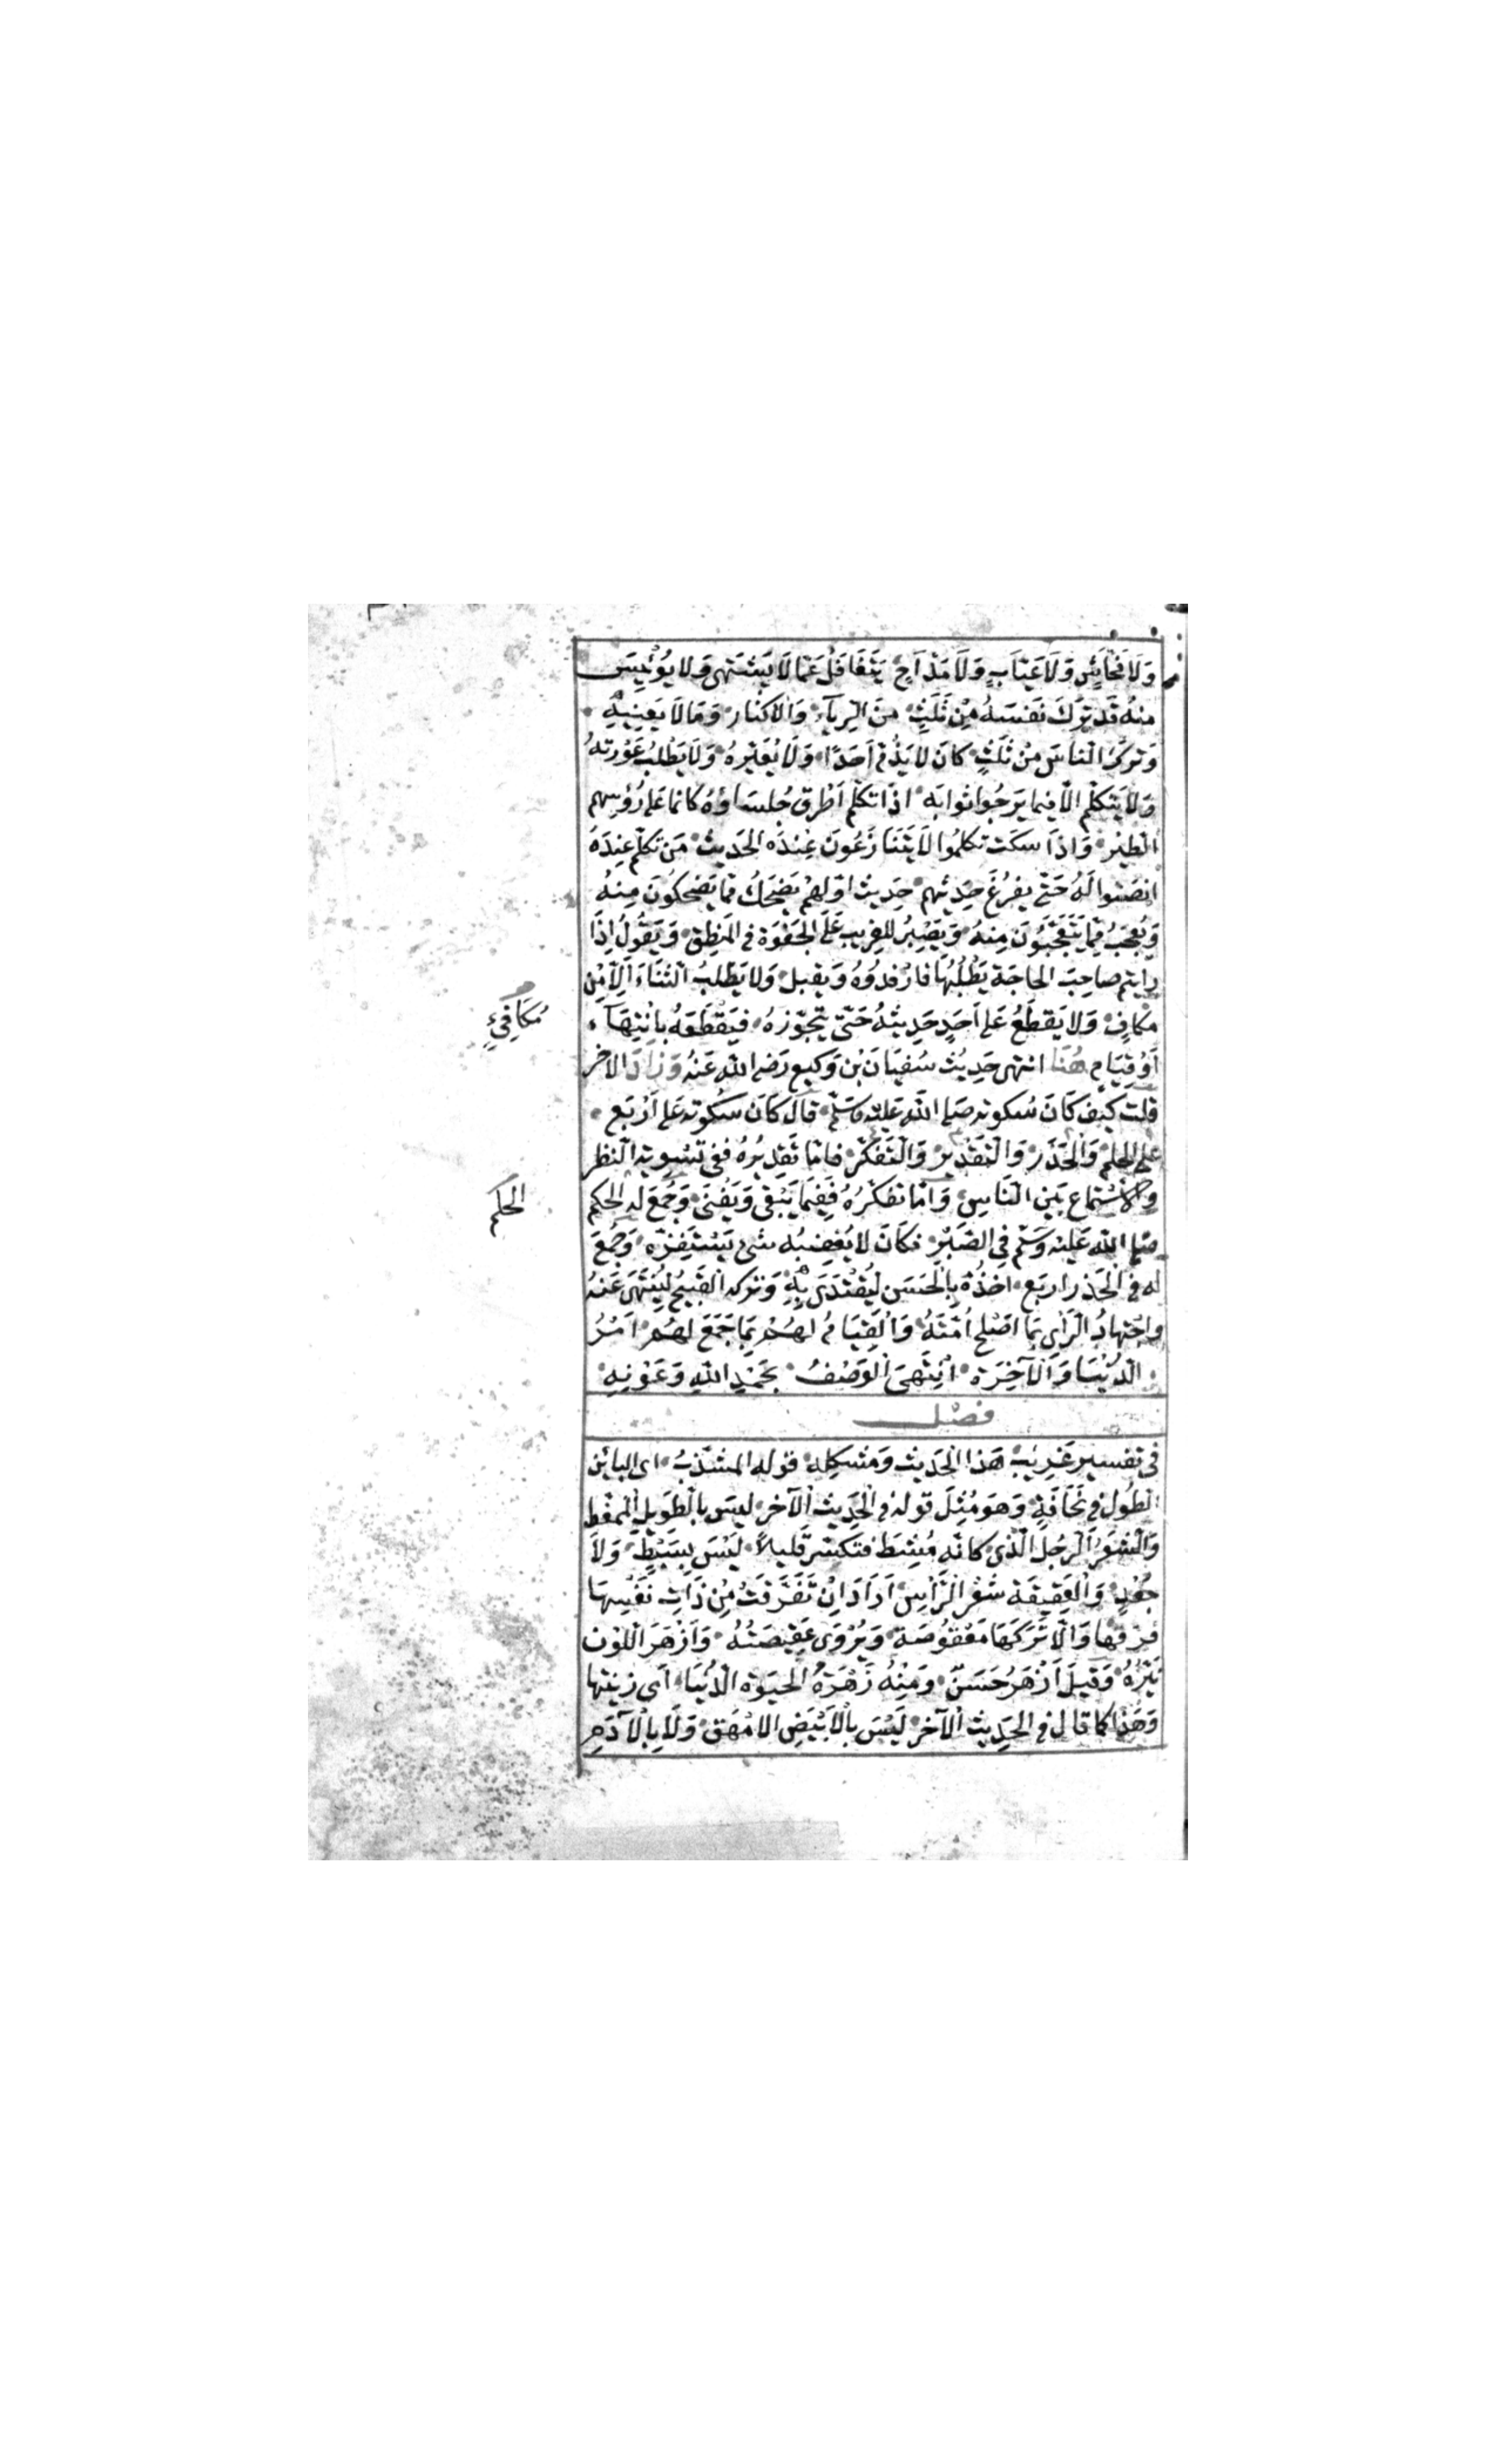 وَلَا فَحَّاشٍ وَلَا عَيَّابٍ وَلَا مَدَّاحٍ يَتَغَافَلُ عَمَّا لَا يَشْتَهِى وَلَا يُؤْيِسُ
مِنْهُ قَدْ تَرَكَ نَفْسَهُ مِنْ ثَلٰثٍ مِنَ الرِّيَآءِ وَالْاِكْثَارِ وَمَا لَا يَعْنِيهِ
وَتَرَكَ النَّاسَ مِنْ ثَلٰثٍ كَانَ لَا يَذُمُّ اَحَدًا وَلَا يُعَيِّرُهُ وَلَا يَطْلُبُ عَوْرَتَهُ
وَلَا يَتَكَلَّمُ اِلَّا فِيمَا يَرْجُوا ثَوَابَهُ اِذَا تَكَلَّمَ اَطْرَقَ جُلَسَاؤُهُ كَانَّمَا عَلَى رُؤُسِهِمِ
الطَّيْرُ وَاِذَا سَكَتَ تَكَلَّمُوا لَا يَتَنَازَعُونَ عِنْدَهُ الْحَدِيثَ مَنْ تَكَلَّمَ عِنْدَهُ
انْصَتُوا لَهُ حَتَّى يَفْرُغَ حَدِيثُهُمْ حَدِيثُ اَوَّلِهِمْ يَضْحَكُ مِمَّا يَضْحَكُونَ مِنْهُ
وَيُعْجَبُ مِمَّا يَتَعَجَّبُونَ مِنْهُ وَيَصْبِرُ لِلْغَرِيبِ عَلَى الْجَفْوَةِ فِى الْمَنْطِقِ وَيَقُولُ اِذَا
رَايْتُمْ صَاحِبَ الْحَاجَةِ يَطْلُبُهَا فَارْفِدُوهُ وَيَقْبَلُ وَلَا يَطْلُبُ الثَّنَاءَ اِلَّا مِنْ
مُكَافٍ وَلَا يَقْطَعُ عَلَى اَحَدٍ حَدِيثَهُ حَتَّى يَتَجَوَّزَهُ فَيَقْطَعَهُ بِانْتِهَآءٍ
مُكَافِئٍ
اَوْ قِيَامٍ هُنَا انْتَهَى حَدِيثُ سُفْيَانَ بْنِ وَكِيعٍ رَضِىَ اللّٰهُ عَنْهُ وَزَادَ الْاٰخَرُ
قُلْتُ كَيْفَ كَانَ سُكُوتُهُ صَلَّى اللّٰهُ عَلَيْهِ وَسَلَّمَ قَالَ كَانَ سُكُوتُهُ عَلَى اَرْبَعٍ
عَلَى الْحِلْمِ وَالْحَذَرِ وَالتَّقْدِيرِ وَالتَّفَكُّرِ فَامَّا تَقْدِيرُهُ فَفِى تَسْوِيَةِ النَّظَرِ
وَالْاِسْتِمَاعِ بَيْنَ النَّاسِ وَاَمَّا تَفَكُّرُهُ فَفِيمَا يَبْقَى وَيَفْنَى وَجُمِعَ لَهُ الْحِكَمُ
الْحِلْمُ
صَلَّى اللّٰهُ عَلَيْهِ وَسَلَّمَ فِى الصَّبْرِ فَكَانَ لَا يُغْضِبُهُ شَىْءٌ يَسْتَفِزُّهُ وَجُمِعَ
لَهُ فِى الْحَذَرِ اَرْبَعٌ اَخْذُهُ بِالْحَسَنِ لِيُقْتَدَى بِهِ وَتَرْكُهُ الْقَبِيحَ لِيُنْتَهَى عَنْهُ
وَاجْتِهَادُ الرَّأْىِ بِمَا اَصْلَحَ اُمَّتَهُ وَالْقِيَامُ لَهُمْ بِمَا جَمَعَ لَهُمْ اَمْرَ
الدُّنْيَا وَالْاٰخِرَةِ انْتَهَى الْوَصْفُ بِحَمْدِ اللّٰهِ وَعَوْنِهِ
فصل
فِى تَفْسِيرِ غَرِيبِ هٰذَا الْحَدِيثِ وَمُشْكِلِهِ قَوْلُهُ الْمُشَذَّبُ اىِ الْبَائِنُ
الطُّولِ فِى نَحَافَةٍ وَهُوَ مِثْلُ قَوْلِهِ فِى الْحَدِيثِ الْاٰخَرِ لَيْسَ بِالطَّوِيلِ الْمُمَّغِطِ
وَالشَّعْرُ الرَّجِلُ الَّذِى كَانَّهُ مُشِطَ فَتَكَسَّرَ قَلِيلًا لَيْسَ بِسَبْطٍ وَلَا
جَعْدٍ وَالْعَقِيقَةُ شَعْرُ الرَّاْسِ اَرَادَ اِنْ تَفَرَّقَتْ مِنْ ذَاتِ نَفْسِهَا
فَرَقَهَا وَاِلَّا تَرَكَهَا مَعْقُوصَةً وَيُرْوَى عَقِيصَتُهُ وَاَزْهَرُ اللَّوْنِ
نَيِّرُهُ وَقِيلَ اَزْهَرُ حَسَنٌ وَمِنْهُ زَهْرَةُ الْحَيٰوةِ الدُّنْيَا اَىْ زِينَتُهَا
وَهٰذَا كَمَا قَالَ فِى الْحَدِيثِ الْاٰخَرِ لَيْسَ بِالْاَبْيَضِ الْاَمْهَقِ وَلَا بِالْاٰدَمِ